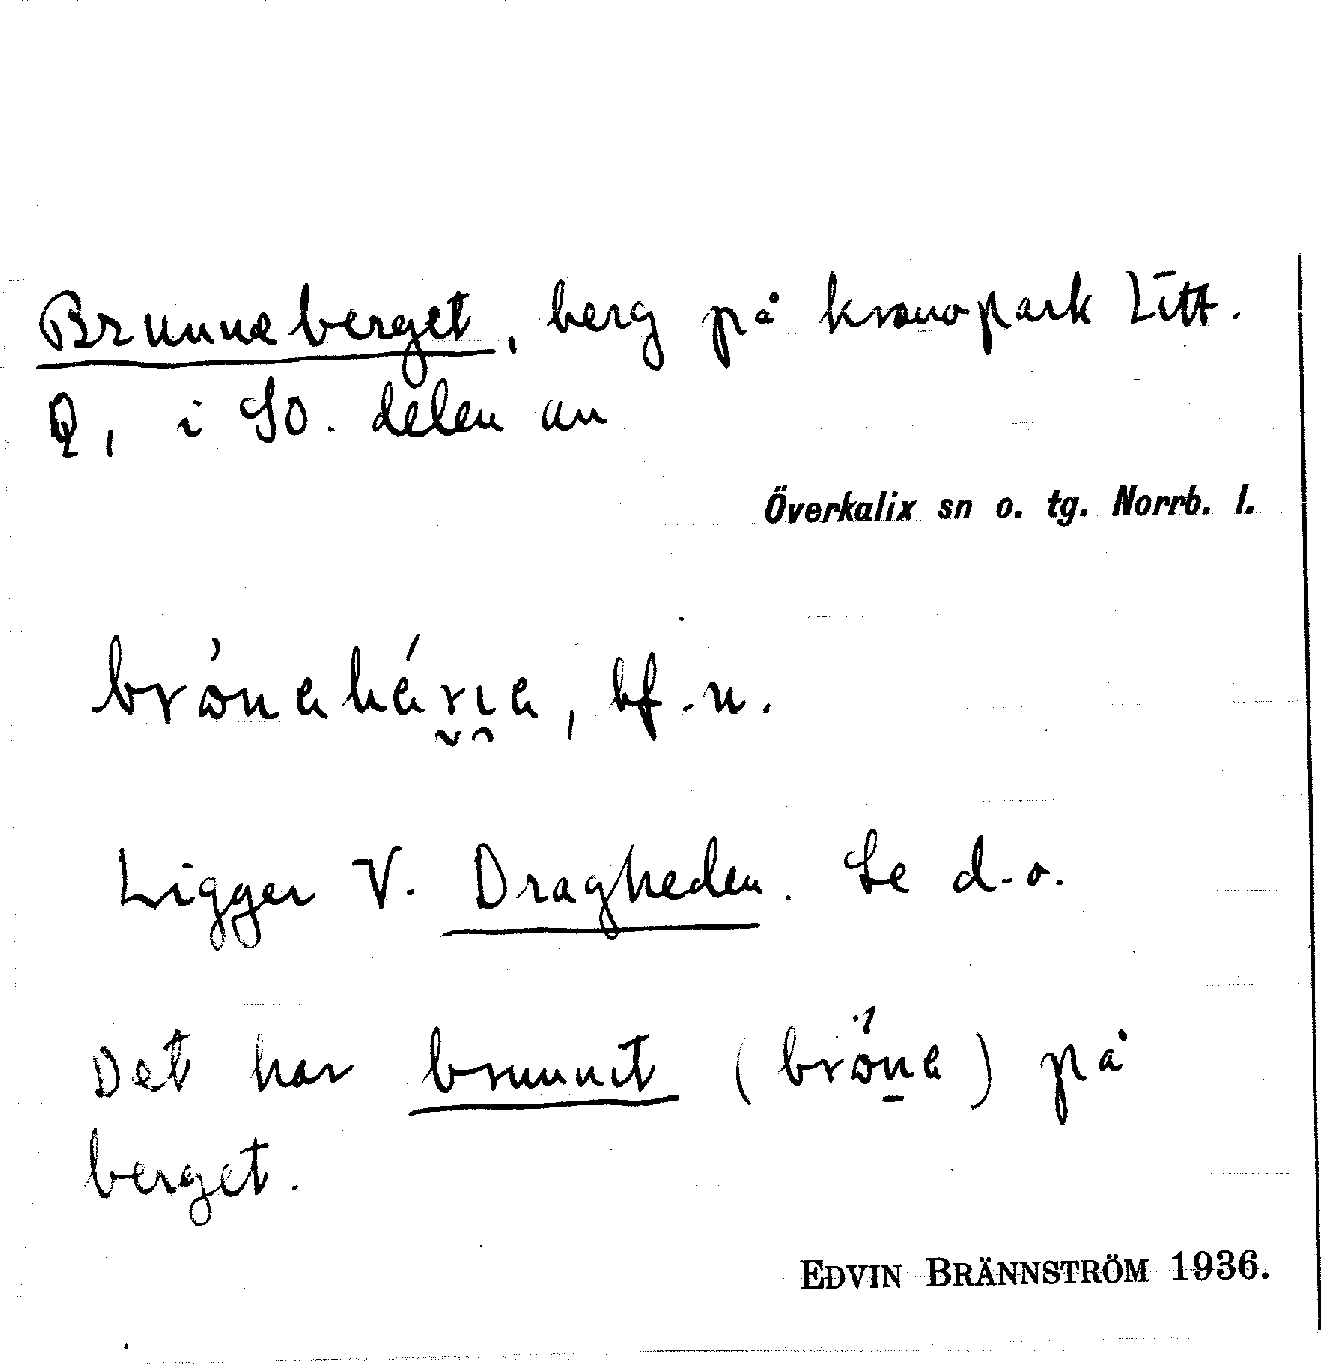 Brunneberget, berg på kronopark Litt.
Q, i SO. delen av
Överkalix sn o. tg. Norrb. l.
bf. n.
Ligger V. Dragheden. Se d.o.
Det har brunnit (bròna) på
berget.
EDVIN BRÄNNSTRÖM 1936.